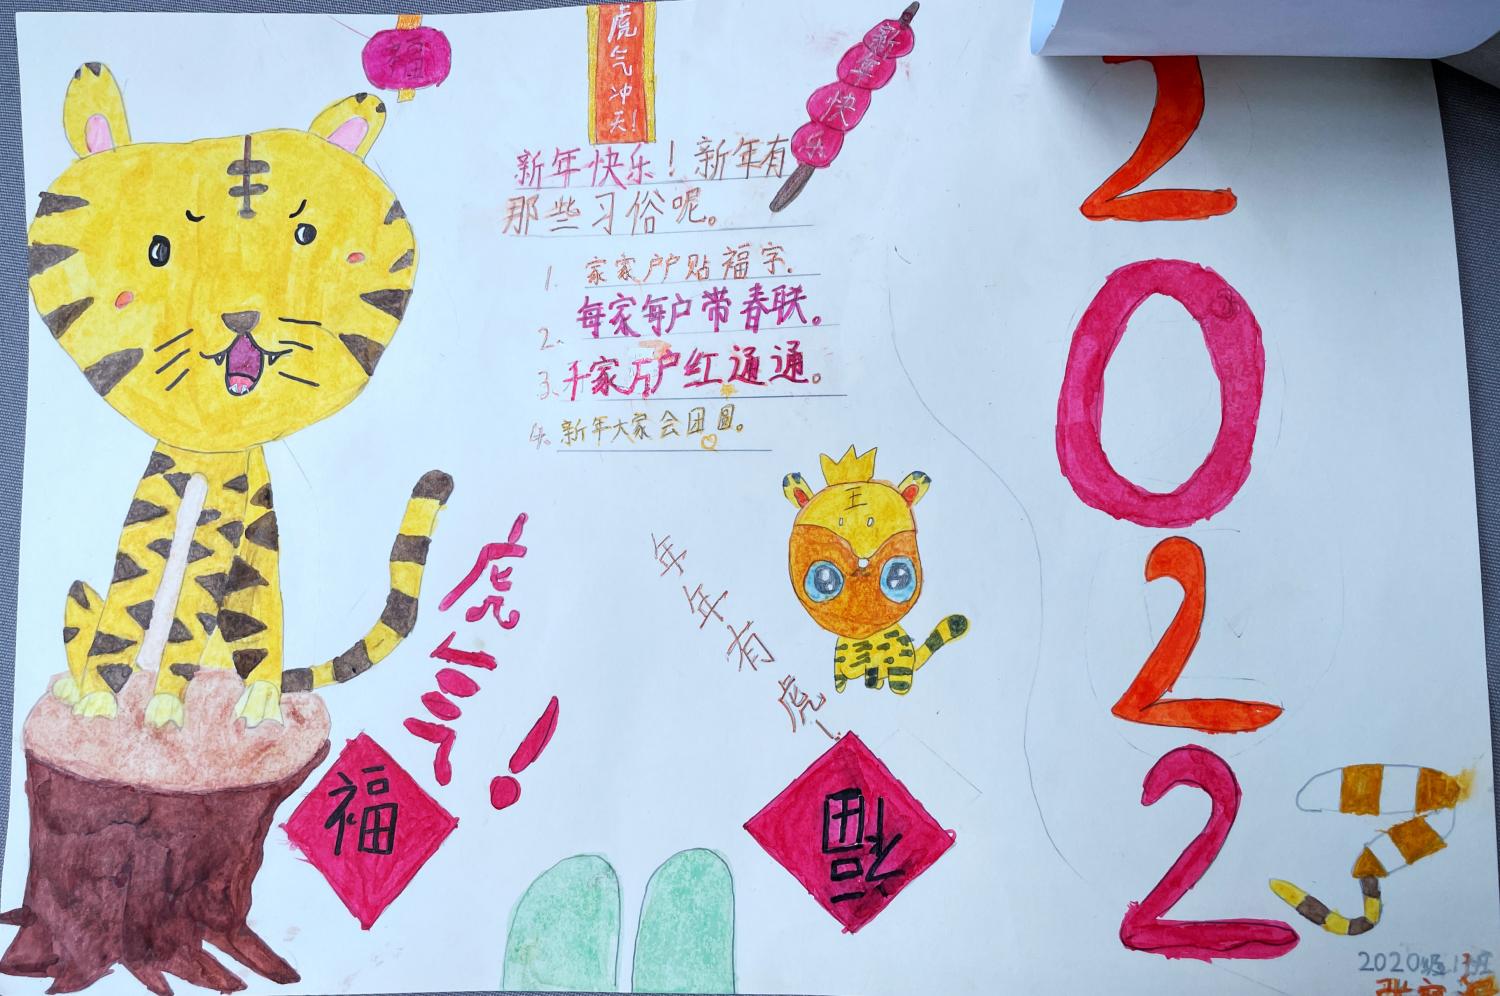 福
虎气冲天!
新年快乐
新年快乐！新年有
那些习俗呢。
1. 家家户户贴福字.
2. 每家每户带春联。
3. 千家万户红通通。
4. 新年大家会团圆。
2022
王
年年有虎!
虎年!
福
福
2020级1班